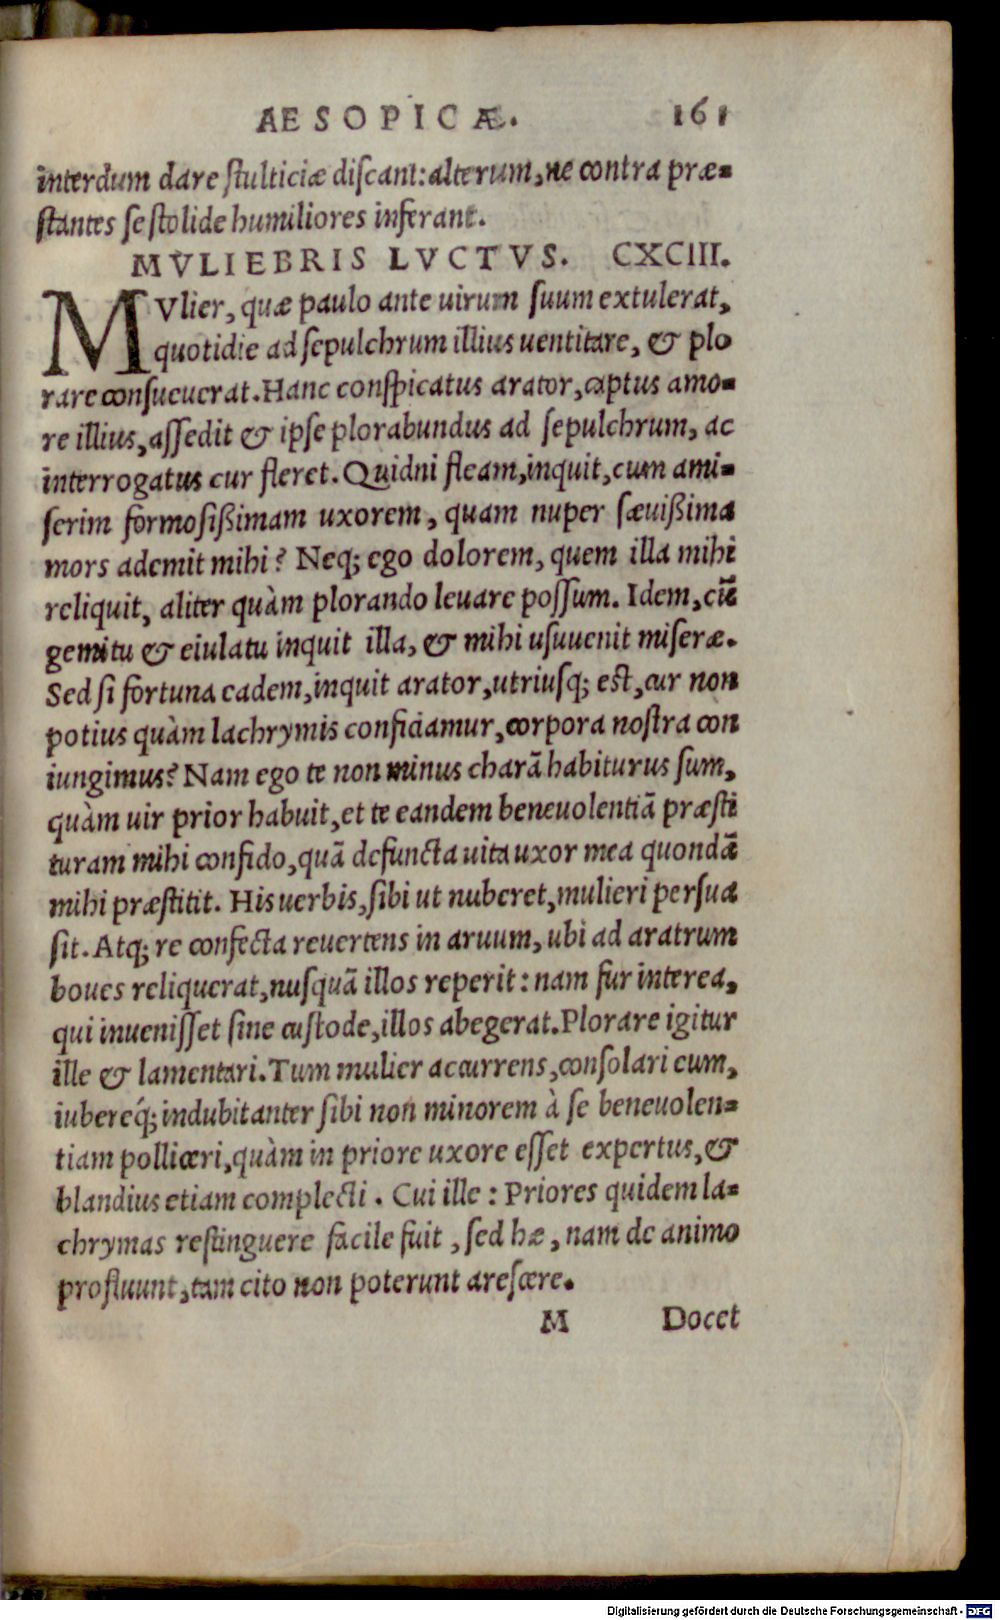 AESOPICÆ. 161
interdum dare ſtulticiæ diſcant: alterum, ne contra præ-
ſtantes ſe ſtolide humiliores inferant.
MVLIEBRIS LVCTVS. CXCIII.
MVlier, quæ paulo ante uirum ſuum extulerat,
quotidie ad ſepulchrum illius uentitare, & plo
rare conſueuerat. Hanc conſpicatus arator, captus amo-
re illius, aſſedit & ipſe plorabundus ad ſepulchrum, ac
interrogatus cur fleret. Quidni fleam, inquit, cum ami-
ſerim formoſißimam uxorem, quam nuper ſæuißima
mors ademit mihi? Neq; ego dolorem, quem illa mihi
reliquit, aliter quàm plorando leuare poſſum. Idem, cū
gemitu & eiulatu inquit illa, & mihi uſuuenit miſeræ.
Sed ſi fortuna eadem, inquit arator, utriuſq; eſt, cur non
potius quàm lachrymis conficiamur, corpora noſtra con
iungimus? Nam ego te non minus charā habiturus ſum,
quàm uir prior habuit, et te eandem beneuolentiā præſti
turam mihi confido, quā defuncta uita uxor mea quondā
mihi præſtitit. His uerbis, ſibi ut nuberet, mulieri perſua
ſit. Atq; re confecta reuertens in aruum, ubi ad aratrum
boues reliquerat, nuſquā illos reperit: nam fur interea,
qui inueniſſet ſine cuſtode, illos abegerat. Plorare igitur
ille & lamentari. Tum mulier accurrens, conſolari eum,
iubereq́; indubitanter ſibi non minorem à ſe beneuolen-
tiam polliceri, quàm in priore uxore eſſet expertus, &
blandius etiam complecti. Cui ille: Priores quidem la-
chrymas reſtinguere facile fuit, ſed hæ, nam de animo
profluunt, tam cito non poterunt areſcere.
M Docet
Digitalisierung gefördert durch die Deutsche Forschungsgemeinschaft - DFG